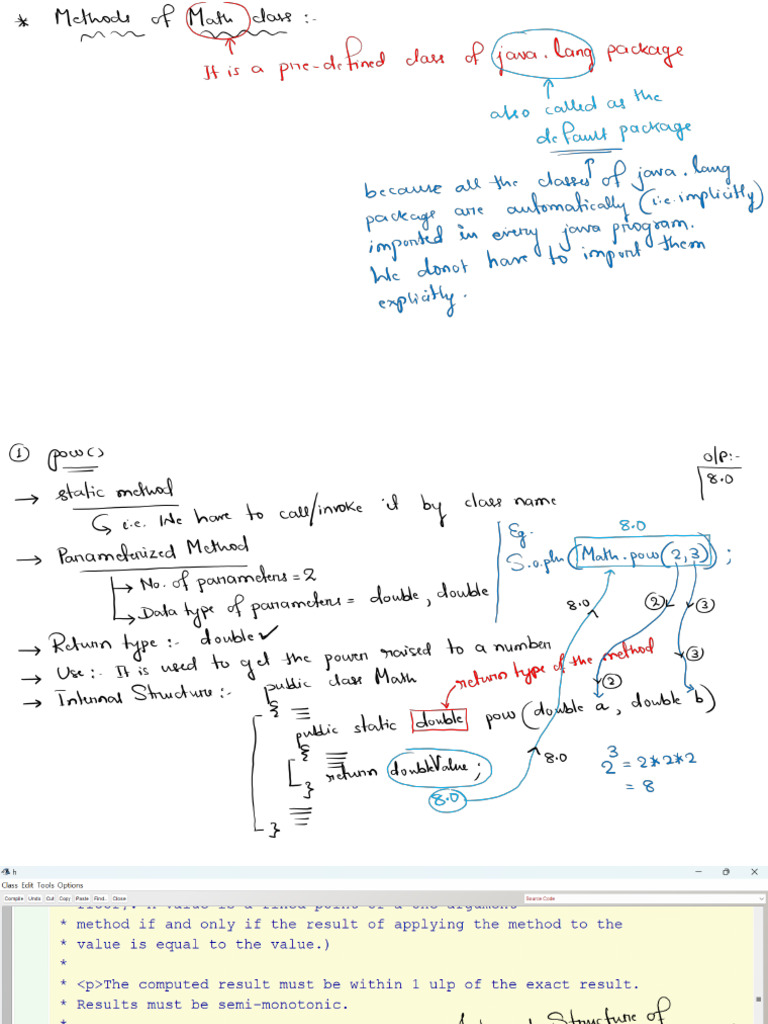 * Methods of Math class :-
It is a pre-defined class of java.lang package
also called as the
default package
because all the classes of java.lang
package are automatically (i.e. implicitly)
imported in every java program.
We donot have to import them
explicitly.
① pow()
→ static method
i.e. We have to call/invoke it by class name
→ Parameterized Method
→ No. of parameters = 2
→ Data type of parameters = double, double
→ Return type :- double ✓
→ Use :- It is used to get the power raised to a number
→ Internal Structure :-
o/p:-
8.0
Eg.
8.0
S.o.pln(Math.pow(2,3));
8.0
② ③
③
②
public class Math
{
return type of the method
public static double pow(double a, double b)
{
return doubleValue;
}
8.0
8.0
}
2³ = 2*2*2
= 8
h
Class Edit Tools Options
Compile Undo Cut Copy Paste Find.. Close
Source Code
* method if and only if the result of applying the method to the
* value is equal to the value.)
*
* <p>The computed result must be within 1 ulp of the exact result.
* Results must be semi-monotonic.
*
Structure of